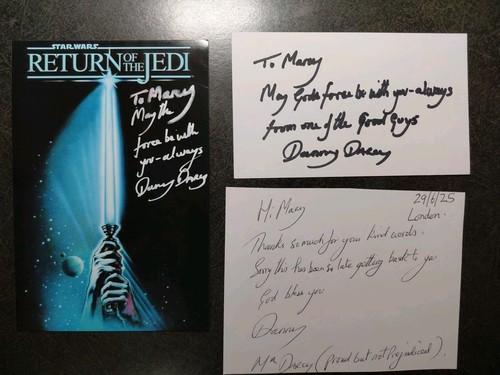 STAR WARS
RETURN OF THE JEDI
To Marcy
May the
force be with
you-always
Danny Darcy
To Marcy
May Gods force be with you-always
from one of the Good Guys
Danny Darcy
29/6/25
London.
Hi Marcy
Thanks so much for your kind words.
Sorry this has been so late getting back to you
God bless you
Danny
Mr Darcy (proud but not Prejudiced).